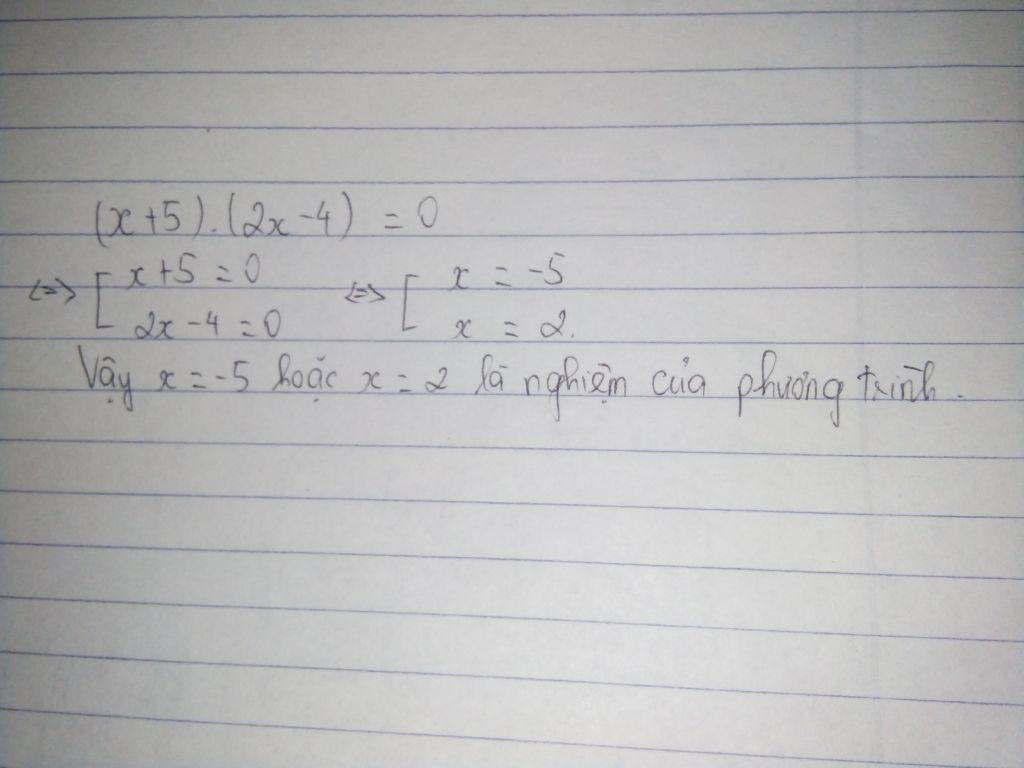 (x+5).(2x-4) = 0
<=> [ x+5 = 0 <=> [ x = -5
2x-4 = 0 x = 2.
Vậy x = -5 hoặc x = 2 là nghiệm của phương trình.